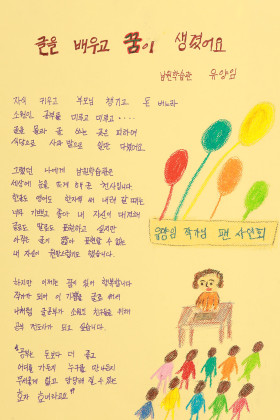 글을 배우고 꿈이 생겼어요
남원학습관 유양임
자식 키우고 부모님 챙기고 돈 버느라
소원인 공부를 미루고 미루고 ····
글을 몰라 글 쓰는 곳은 피하여
식당으로 사과 밭으로 일만 다녔어요.
그랬던 나에게 남원학습관은
세상에 눈을 뜨게 해 준 천사입니다.
한글도 영어도 한자도 써 내려 갈 때는
너무 기쁘고 좋아 내 자신이 대견해
글로도 말로도 표현하고 싶지만
아무도 글로 표현할 수 없는
내 자신이 원망스럽기도 했습니다.
하지만 이제는 꿈이 있어 행복합니다
작가가 되어 이 기쁨을 글로 써서
나처럼 글공부가 소원인 친구들을 위해
글의 전도사가 되고 싶습니다.
"공부는 돈보다 더 좋고
어디를 가든지 누구를 만나든지
무시당하지 않고 당당해 질 수 있는
효자 효녀라오요"
유양임 작가님 팬 사인회